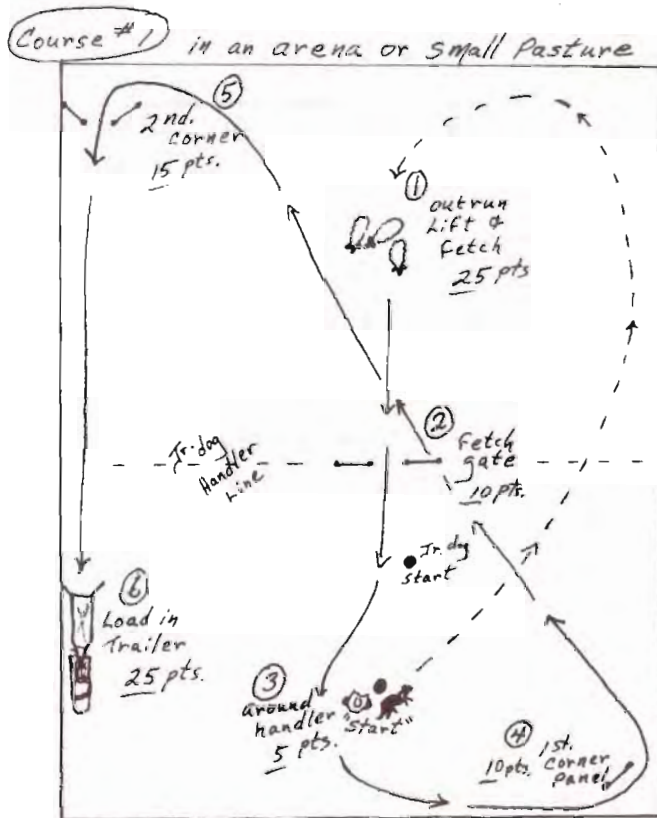 Course #1 in an arena or small Pasture
5
2nd.
corner
15 pts.
1
outrun
Lift &
Fetch
25 pts
2
Fetch
gate
10 pts.
Jr. dog
Handler
Line
Jr. dog
start
6
Load in
Trailer
25 pts.
3
around
handler
5 pts.
"start"
4
1st.
Corner
Panel
10 pts.